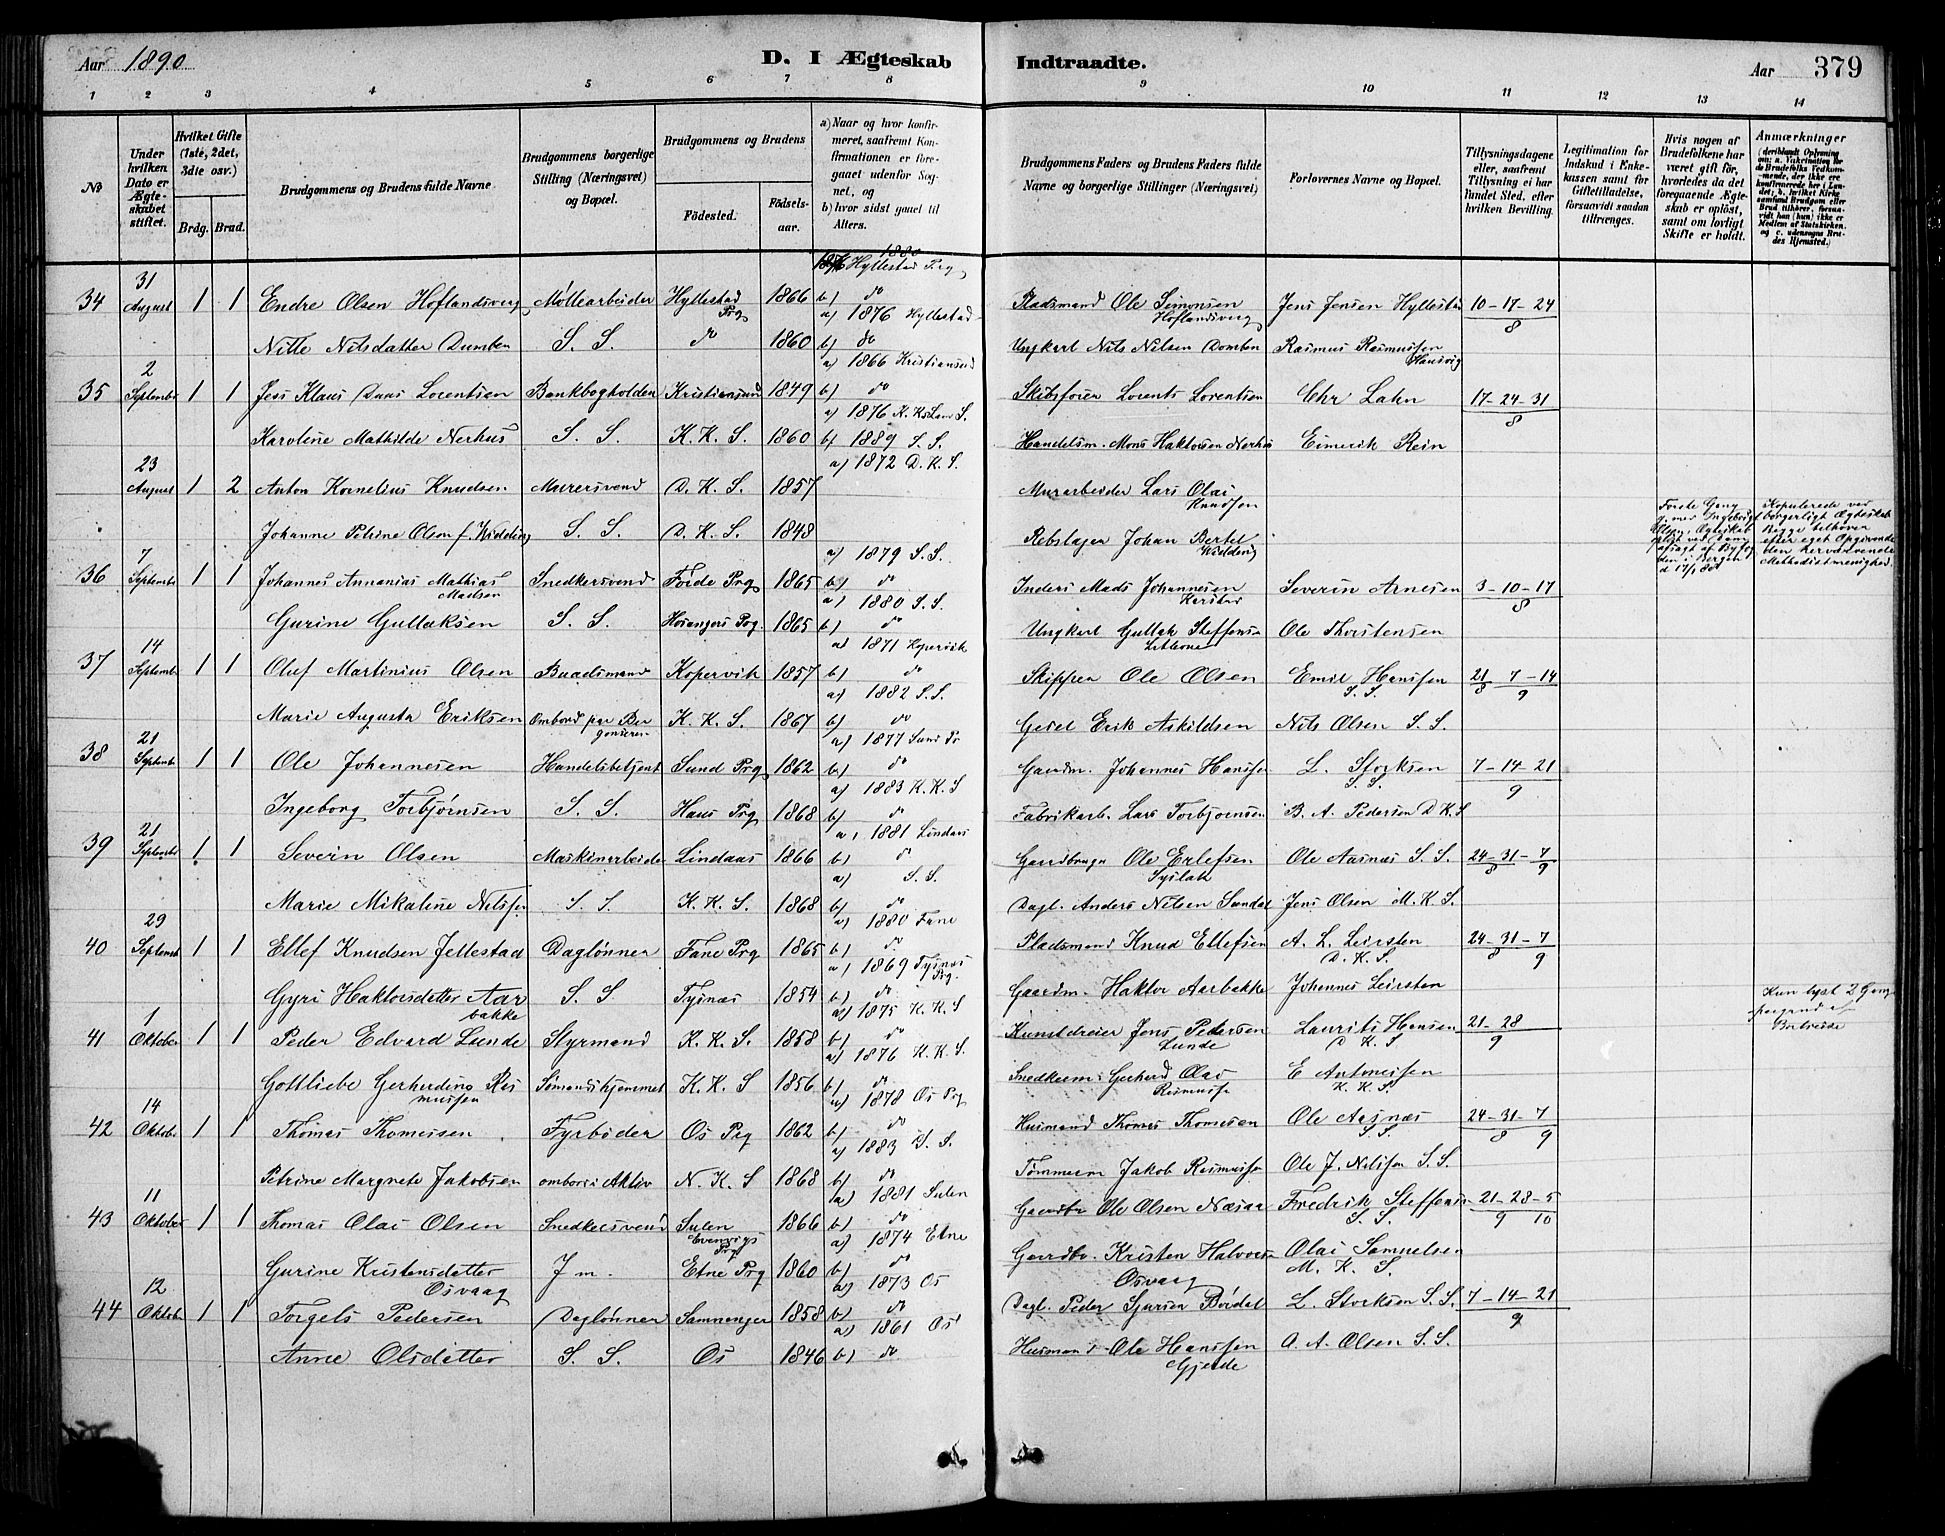 Aar 1890
D. I Ægteskab Indtraadte.
Aar 379
1 2 3 4 5 6 7 8 9 10 11 12 13 14
No
Under hvilken Dato er Ægteskabet stiftet.
Hvilket Gifte (1ste, 2det, 3die osv.)
Brdg. Brud.
Brudgommens og Brudens fulde Navne
Brudgommens borgerlige Stilling (Næringsvei) og Bopæl.
Brudgommens og Brudens
Fødested.
Fødselsaar.
a) Naar og hvor konfirmeret, saafremt Konfirmationen er foregaaet udenfor Sognet, og
b) hvor sidst gaaet til Alters.
Brudgommens Faders og Brudens Faders fulde Navne og borgerlige Stillinger (Næringsvei)
Forlovernes Navne og Bopæl.
Tillysningsdagene eller, saafremt Tillysning ei har fundet Sted, efter hvilken Bevilling.
Legitimation for Indskud i Enkekassen samt for Giftetilladelse, forsaavidt saadan tiltrænges.
Hvis nogen af Brudefolkene har været gift før, hvorledes da det foregaaende Ægteskab er opløst, samt om lovligt Skifte er holdt.
Anmærkninger
1880 Hyllestad Prg
34 31 August 1 1 Endre Olsen Hoflandsverg Møllearbeider Hyllestad Prg 1866 b) do Pladsmand Ole Simonsen Hoflandsverg Jens Jensen Hyllestad 10-17-24 8
a) 1876 Hyllestad
Nille Nilsdatter Dumben S. S. do 1860 b) do Ungkarl Nils Nilsen Domben Rasmus Rasmussen
a) 1866 Kristiansund
35 2 September 1 1 Jess Klaus Daus Lorentsen Bankbogholder Kristiansund 1849 b) do Skibsfører Lorents Lorentsen Chr Lahn 17-24-31 8
a) 1876 K. K. S.
Karoline Mathilde Nerhus S. S. K. K. S. 1860 b) 1889 S. S. Handelsm. Mons Haktorsen Nerhus Eimerik Rein
a) 1872 D. K. S.
23 August 1 2 Anton Kornelius Knudsen Murersvend D. K. S. 1857 Murarbeider Lars Olai Knudsen
Johanne Petrine Olsen f. Widding S. S. D. K. S. 1848 Rebslager Johan Bertel Widding
Kopulerede ved borgerligt Ægteskab Begge tilhører efter eget Opgivende den herværende Methodistmenighed.
a) 1879 S. S.
36 7 September 1 1 Johannes Annanias Mathias Madsen Snedkersvend Førde Prg 1865 b) do Inders Mads Johannesen Karstad Severin Arnesen 3-10-17 8
a) 1880 S. S.
Gurine Gullaksen S. S. Hosangers Prg. 1865 b) do Ungkarl Gullak Steffensen Ole Thorstensen
a) 1871 Kopervik
37 14 September 1 1 Oluf Martinius Olsen Baadsmand Kopervik 1857 b) do Skipper Ole Olsen Emil Hanssen S. S. 21 8 7-14 9
a) 1882 S. S.
Marie Augusta Eriksen Ombord paa Bergenseren K. K. S. 1867 b) do Erik Askildsen Nils Olsen S. S.
a) 1877 Sund Pr
38 21 September 1 1 Ole Johannesen Handelsbetjent Sund Prg 1862 b) do Gaardm. Johannes Hanssen L. Storksen S. S. 7-14-21 9
a) 1883 K. K. S
Ingeborg Torbjørnsen S. S. Haus Prg 1868 b) do Fabrikarb. Lars Torbjørnsen B. A. Pedersen D. K. S
a) 1881 Lindaas
39 21 September 1 1 Severin Olsen Maskinarbeider Lindaas 1866 b) do Gaardbruger Ole Erlefsen Syslak Ole Aasnæs S. S. 24-31 8 7 9
a) S. S.
Marie Mikaline Nilssen S. S. K. K. S. 1868 b) do Dagl. Anders Nilsen Sandal Jens Olsen M. K. S.
a) 1880 Fane
40 29 September 1 1 Ellef Knudsen Jellestad Daglønner Fane Prg 1865 b) do Pladsmand Knud Ellefsen A. L. Leirsten D. K. S. 24-31 8 7 9
a) 1869 Tysnæs Prg.
Gyri Haktorsdatter Aarbakke S. S Tysnæs 1854 b) do Gaardm. Haktor Aarbakke Johannes Leirsten
a) 1875 K. K. S
41 1 Oktober 1 1 Peder Edvard Lunde Styrmand K. K. S. 1858 b) do Kunstdreier Jens Pedersen Lunde Laurits Hansen D K. S 21-28 9
Kun lyst 2 Gange
a) 1876 K. K. S.
Gottliebe Gerhardine Rasmussen Sømandshjemmet K. K. S 1856 b) do Snedkerm. Gerhard Olai Rasmussen E Antonissen K. K. S.
a) 1878 Os Prg
42 14 Oktober 1 1 Thomas Thomassen Fyrbøder Os Prg 1862 b) do Husmand Thomas Thomesen Ole Aasnæs S. S. 24-31 8 7 9
a) 1883 S. S.
Petrine Margrete Jakobsen ombord i Aktiv N. K. S 1868 b) do Tømmerm Jakob Rasmussen Ole J. Nilssen S. S.
a) 1881 Sulen
43 11 Oktober 1 1 Thomas Olai Olsen Snedkersvend Sulen Evenvigs Prg 1866 b) do Gaardbr Ole Olsen Næsaa Fredrik Steffensen S. S. 21-28 9 5 10
a) 1874 Etne
Gurine Kristensdatter Osvaag J m. Etne Prg 1860 b) do Gaardbr. Kristen Halvorsen Osvaag Olai Samuelsen M. K. S.
a) 1873 Os
44 12 Oktober 1 1 Torgels Pedersen Daglønner Samnanger 1858 b) do Dagl. Peder Sjursen Børdal L. Storksen S. S. 7-14-21 9
a) 1861 Os
Anne Olsdatter S. S. Os 1846 b) do Husmand Ole Hanssen Gjerde A. A. Olsen S. S.